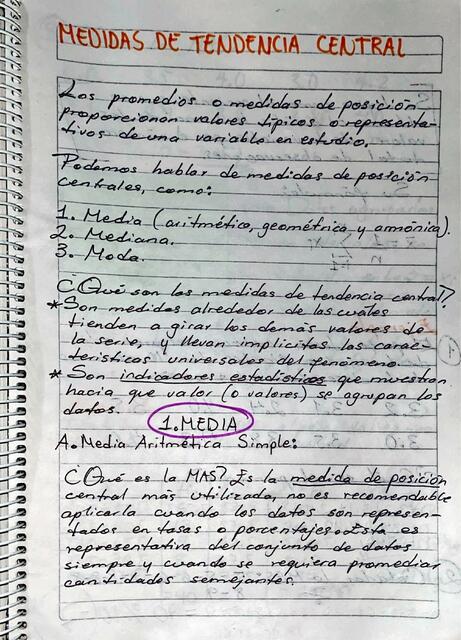 MEDIDAS DE TENDENCIA CENTRAL
Los promedios o medidas de posición
proporcionan valores típicos o representa-
tivos de una variable en estudio.
Podemos hablar de medidas de posición
centrales, como:
1. Media (aritmética, geométrica y armónica).
2. Mediana.
3. Moda.
¿Qué son las medidas de tendencia central?
* Son medidas alrededor de las cuales
tienden a girar los demás valores de
la serie, y llevan implícitas las carac-
terísticas universales del fenómeno.
* Son indicadores estadísticos que muestran
hacia que valor (o valores) se agrupan los
datos.
1. MEDIA
A. Media Aritmética Simple:
¿Qué es la MAS? Es la medida de posición
central más utilizada, no es recomendable
aplicarla cuando los datos son represen-
tados en tasas o porcentajes. Esta es
representativa del conjunto de datos
siempre y cuando se requiera promediar
cantidades semejantes.